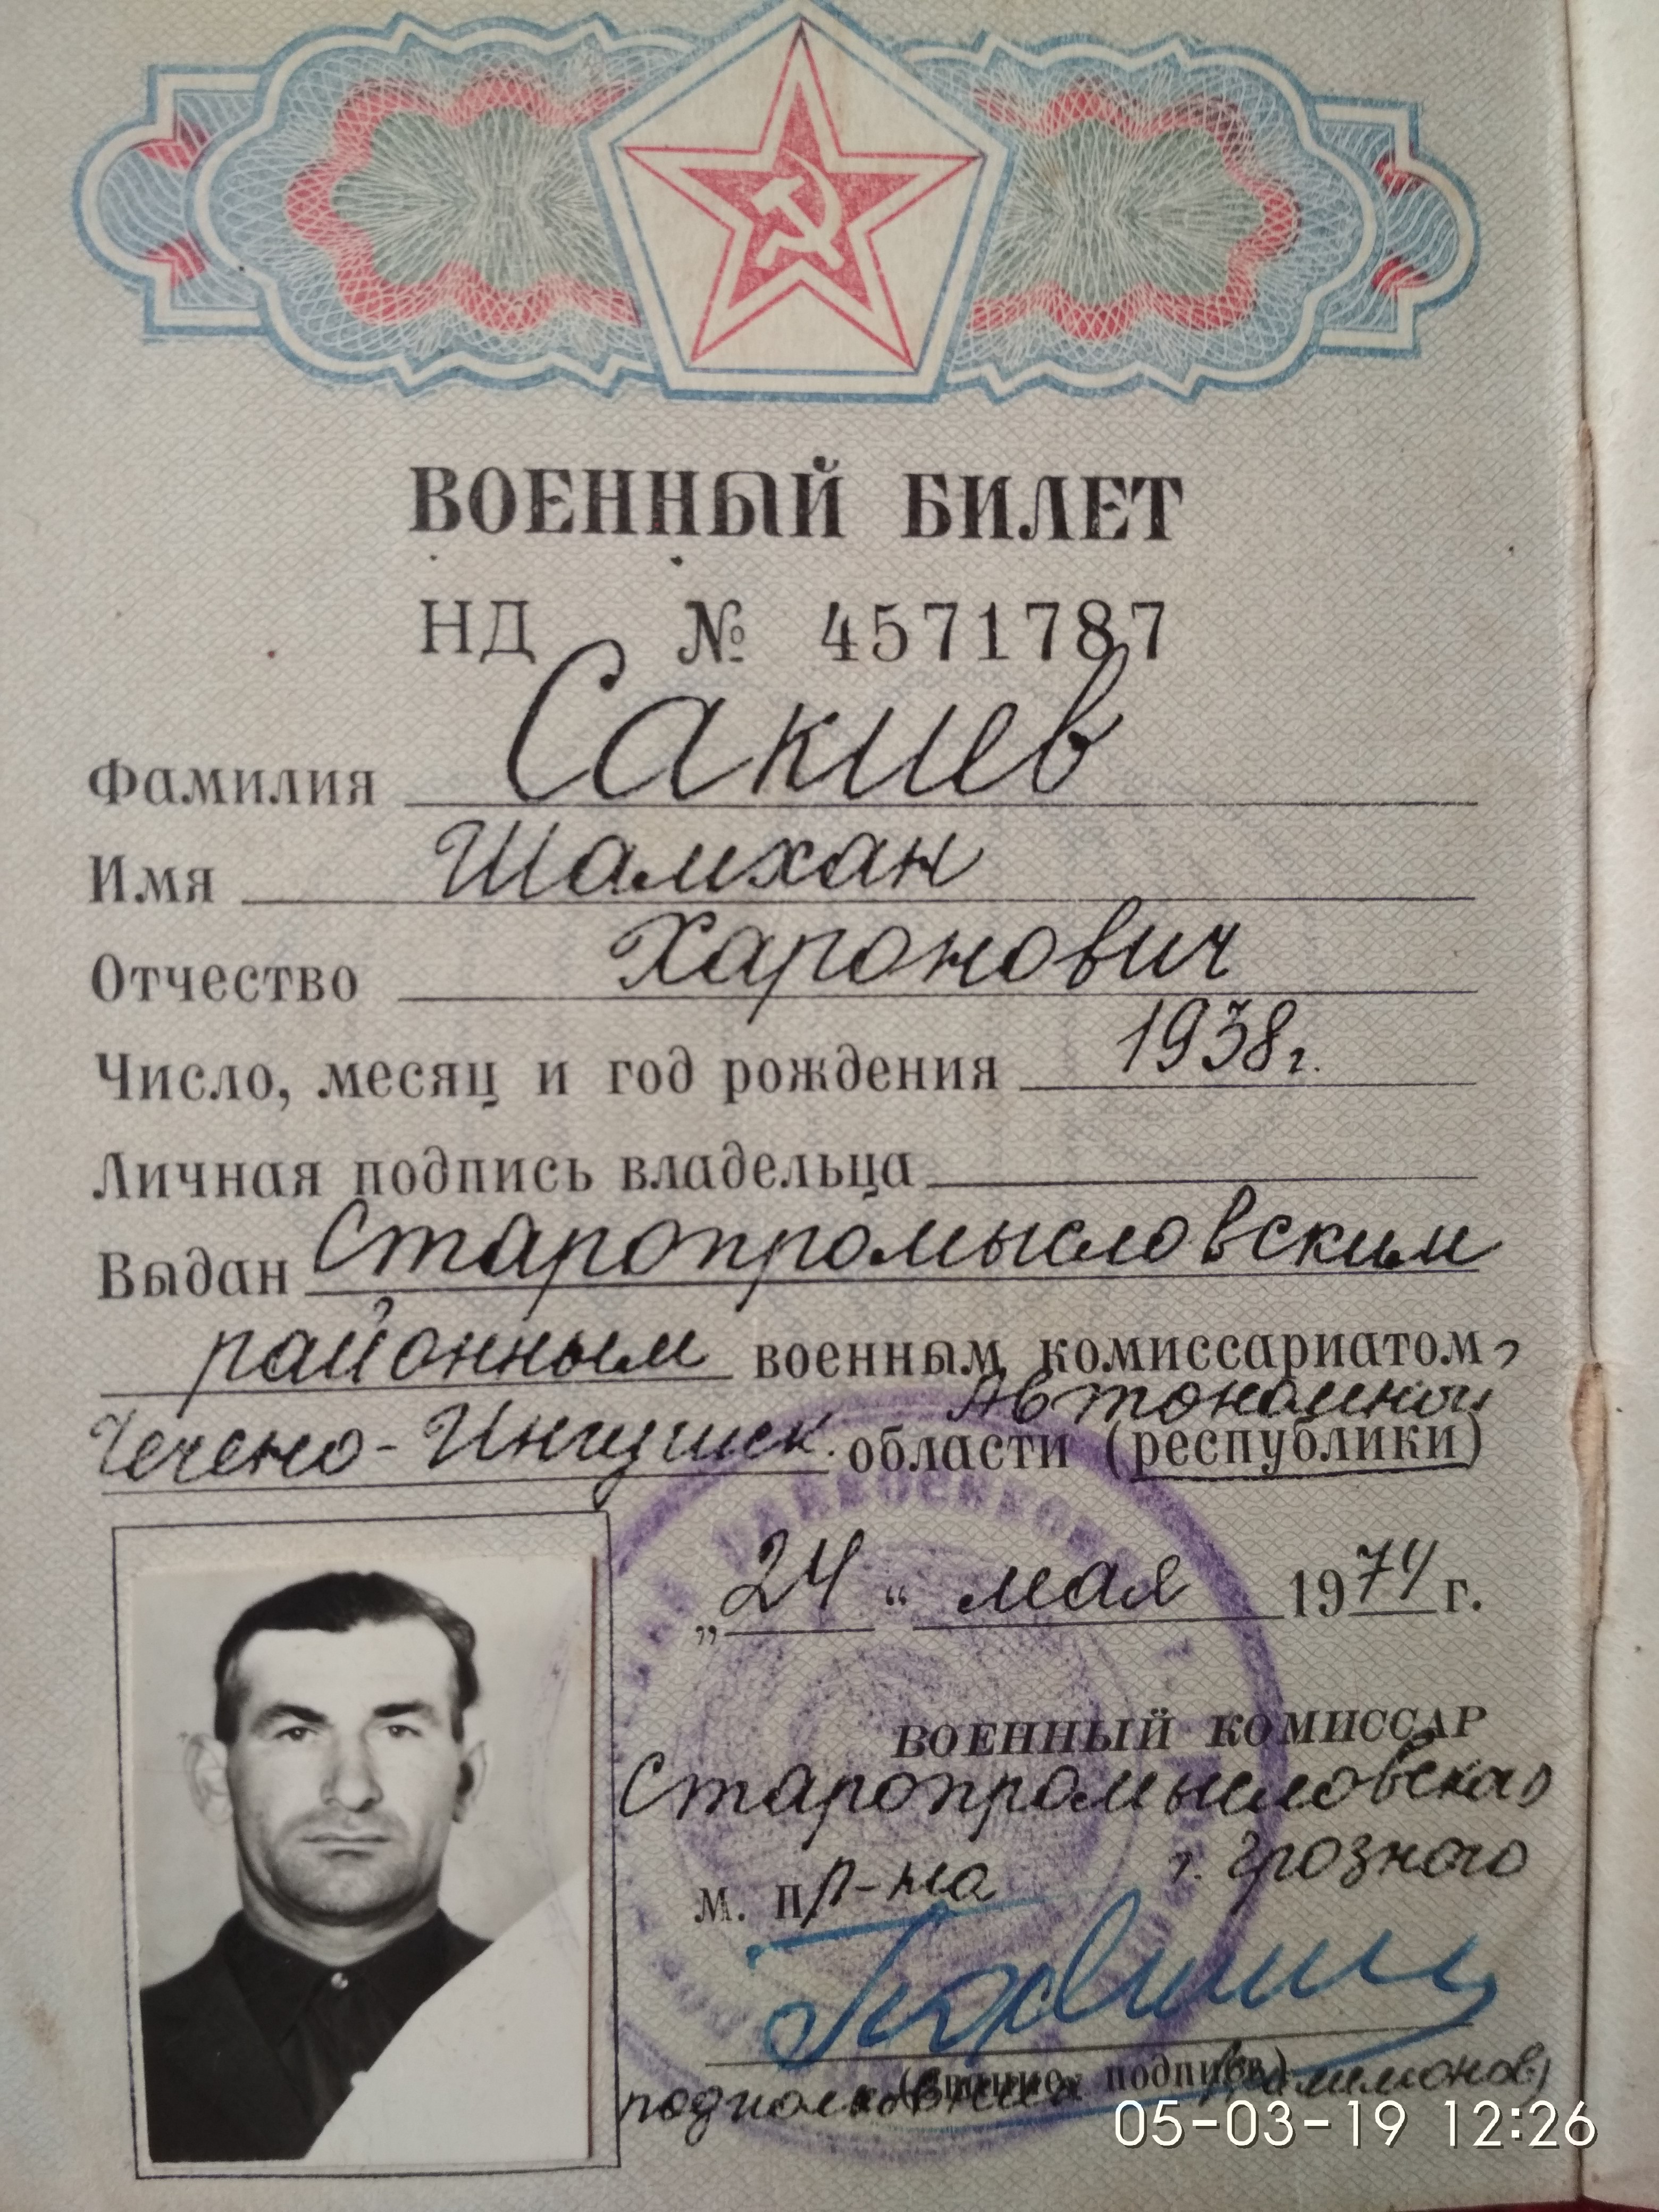 ВОЕННЫЙ БИЛЕТ
НД № 4571787
Фамилия Сакиев
Имя Шамхан
Отчество Харонович
Число, месяц и год рождения 1938г.
Личная подпись владельца
Выдан Старопромысловским
районным военным комиссариатом,
Автономной
Чечено-Ингушск. области (республики)
„24“ мая 1974 г.
ВОЕННЫЙ КОМИССАР
Старопромысловского
м. п. р-на г. Грозного
(звание, подпись)
подполковник
05-03-19 12:26